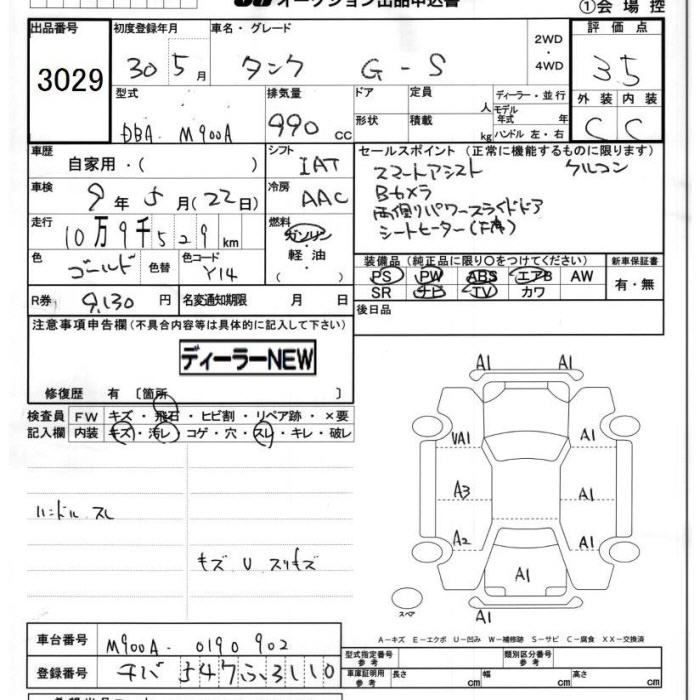 オークション出品申込書
①会場控
出品番号 初度登録年月 車名・グレード 2WD ・ 4WD 評価点
3029 30 5月 タンク G-S 3.5
型式 排気量 ドア 定員 人 ディーラー・並行 外装 内装
DBA. M900A 990 cc 形状 積載 kg モデル年式 年 ハンドル 左・右 C C
車歴 自家用・( ) シフト IAT セールスポイント (正常に機能するものに限ります)
スマートアシスト
Bカメラ
両側パワースライドドア
シートヒーター(F席)
車検 9年5月(22日) 冷房 AAC
走行 10万9千529km 燃料 ガソリン 軽油 ( )
色 ゴールド 色替 色コード Y14
装備品 (純正品に限り○をつけてください) 新車保証書
PS PW ABS エアB AW 有・無
SR ナビ TV カワ
R券 9,130円 名変通知期限 月 日
後日品
注意事項申告欄(不具合内容等は具体的に記入して下さい)
ディーラーNEW
修復歴 有 〔箇所 〕
検査員 FW キズ・飛石・ヒビ割・リペア跡・×要
記入欄 内装 キズ・汚レ・コゲ・穴・スレ・キレ・破レ
ハンドル スレ
キズ U スリキズ
A1 A1
VA1 A1
A3 A1
A2 A1
A1
A1
スペア
A－キズ E－エクボ U－凹み W－補修跡 S－サビ C－腐食 XX－交換済
車台番号 M900A-0190902
登録番号 チバ 547 ふ 3110
型式指定番号 参考 類別区分番号 参考
車庫証明用 参考 長さ cm 幅 cm 高さ cm